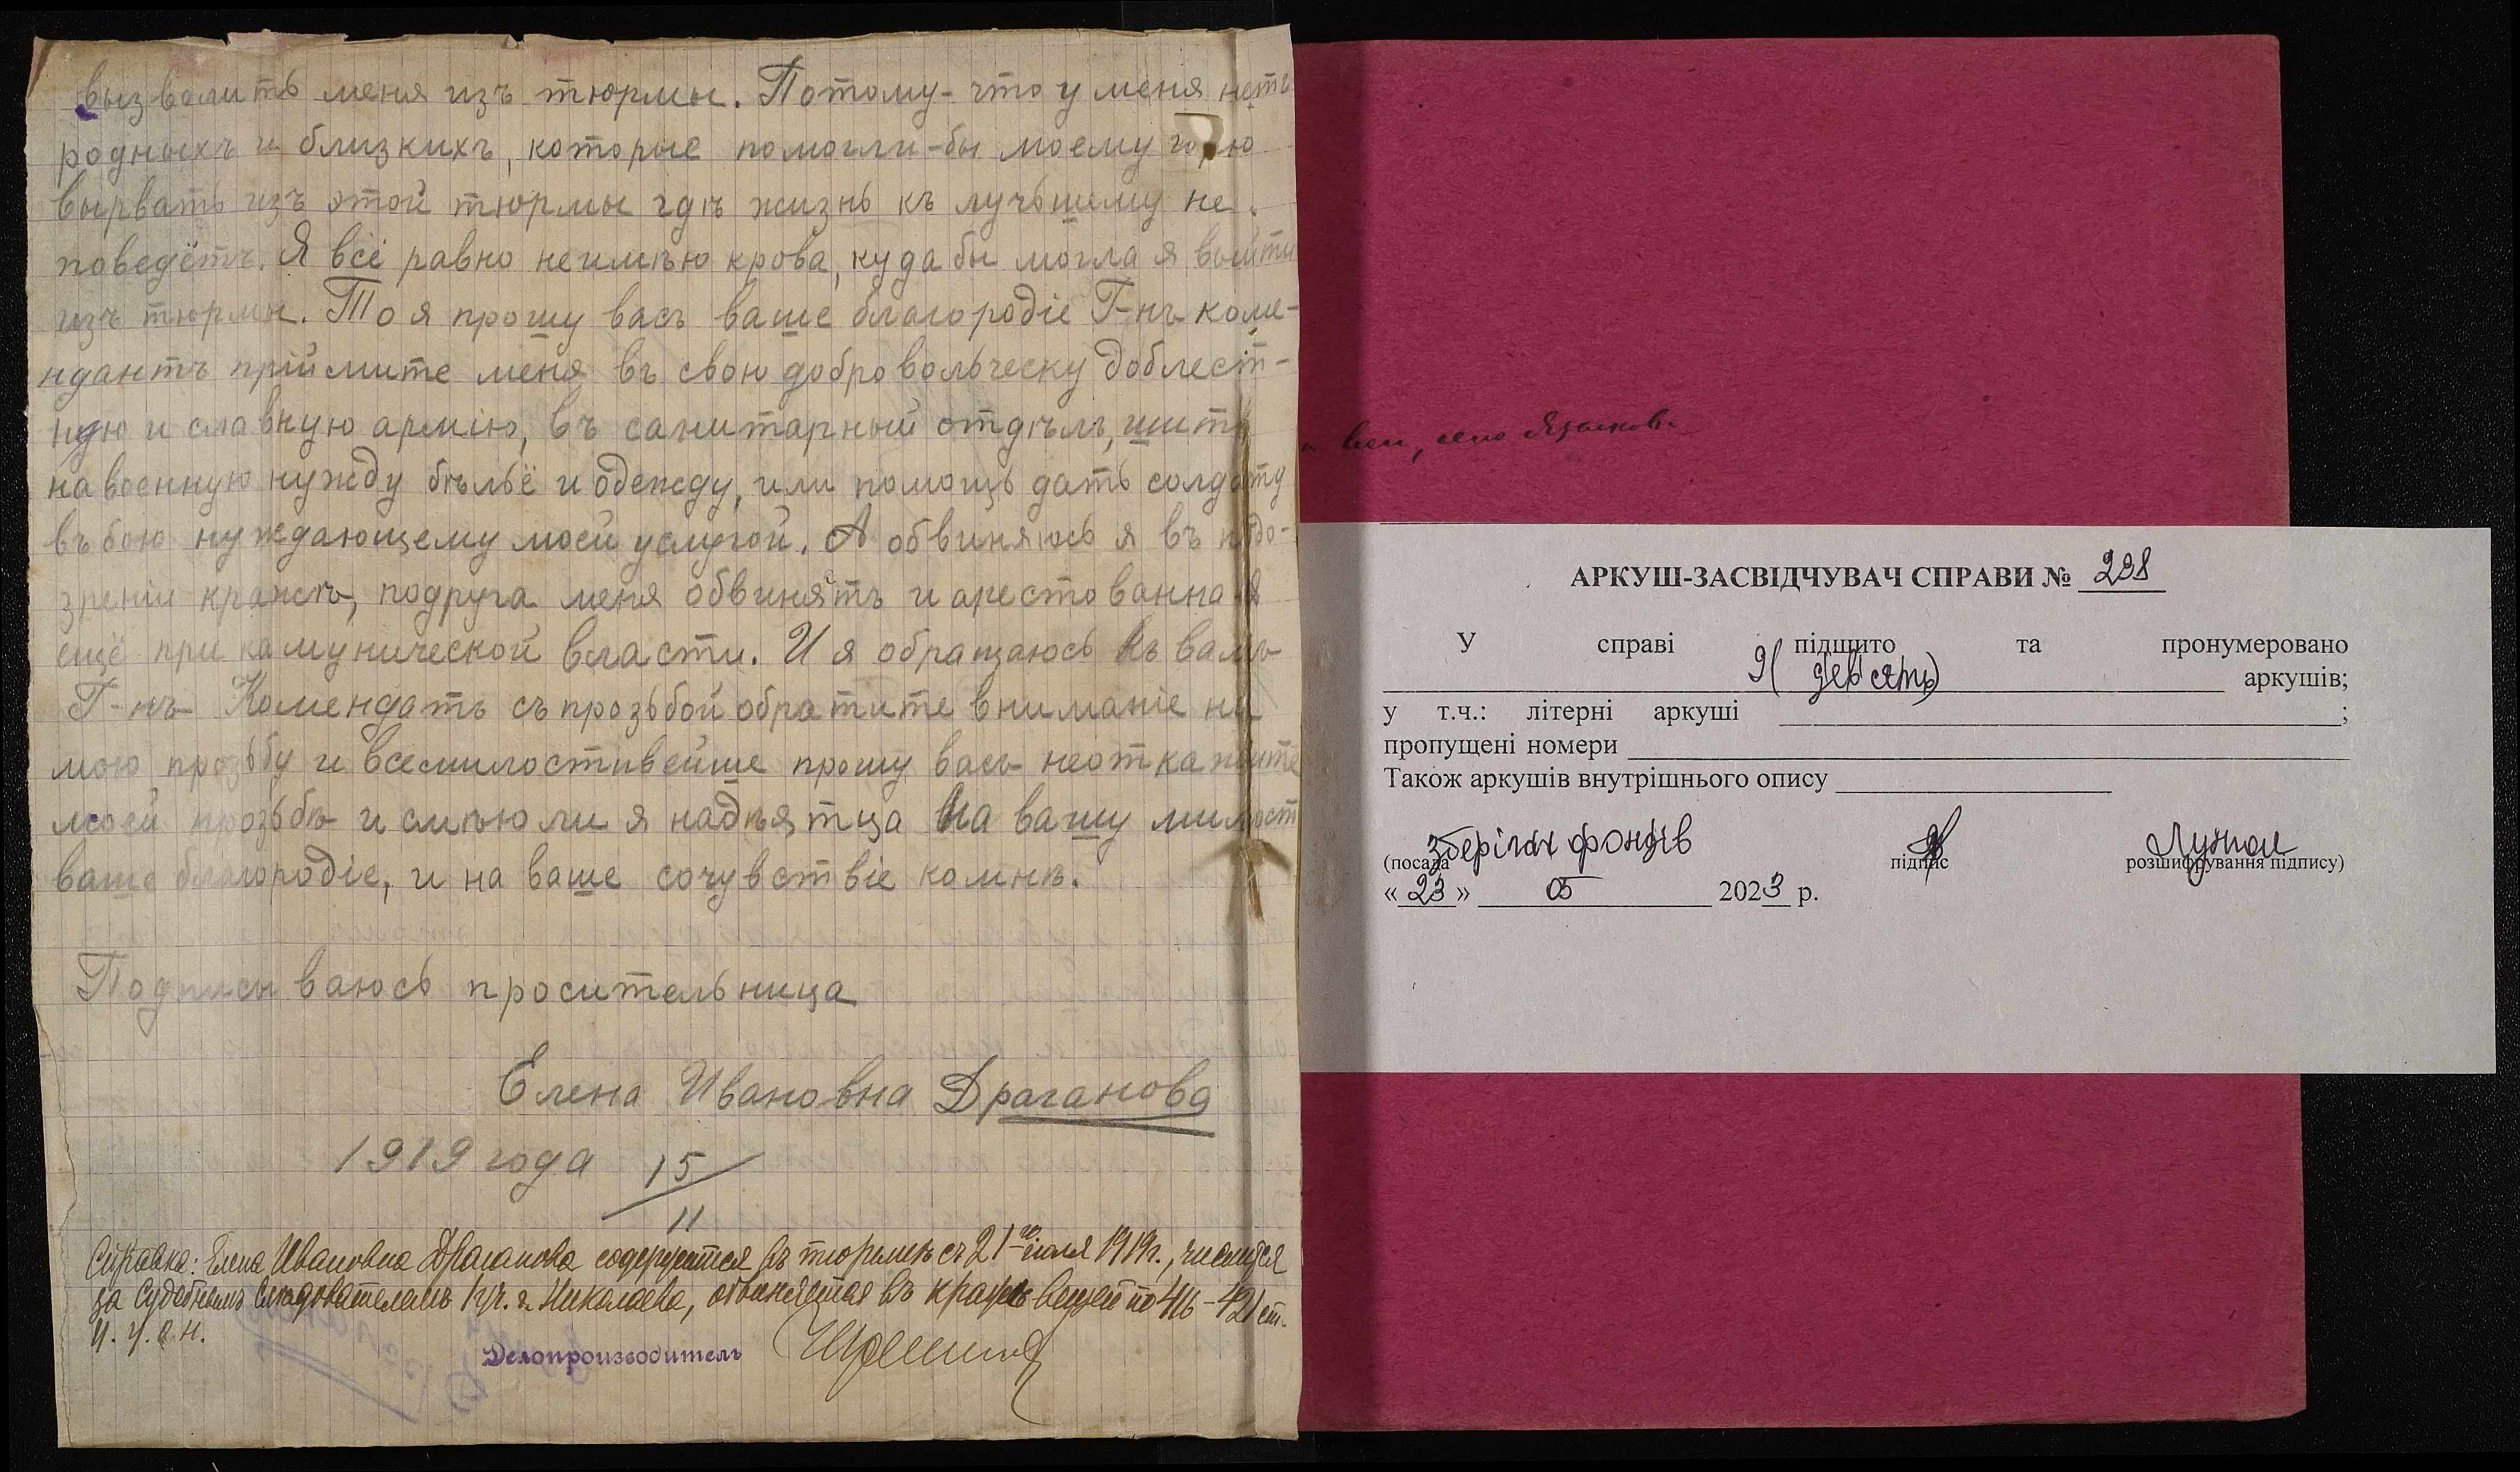 вызволить меня изъ тюрмы. Потому-что у меня нетъ
родныхъ и близкихъ, которые помогли-бы моему горю
вырвать изъ этой тюрмы гдѣ жизнь къ лучьшему не
поведётъ. Я всё равно неимѣю крова, куда бы могла я выйти
изъ тюрмы. То я прошу васъ ваше благородіе Г-нъ коме-
ндантъ прiймите меня въ свою добровольческу доблест-
ную и славную армію, въ санитарный отдѣлъ, шить
на военную нужду бѣльё и одежду, или помощь дать солдату
въ бою нуждающему моей услугой. А обвиняюсь я въ подо-
зреніи кражѣ, подруга меня обвиняетъ и арестованна я
ещё при камунической власти. И я обращаюсь къ вамъ
Г-нъ Комендатъ съ прозьбой обратите вниманіе на
мою прозьбу и всемилостивейше прошу васъ неоткажите
моей прозьбѣ и смѣю ли я надѣятца на вашу милост
ваше благородіе, и на ваше сочувствіе комнѣ.
Подписываюсь просительница
Елена Ивановна Драганова
1919 года 15/11
Справка: Елена Ивановна Драганова содержится въ тюрьмѣ съ 21-го іюля 1919г., числится
за Судебнымъ Слѣдователемъ 1 уч. г. Николаева, обвиняется въ кражѣ вещей по 416-421 ст.
У. у. о н.
Делопроизводитель
село
АРКУШ-ЗАСВІДЧУВАЧ СПРАВИ № 298
У справі підшито та пронумеровано
9 (девять) аркушів;
у т.ч.: літерні аркуші ;
пропущені номери
Також аркушів внутрішнього опису
зберігач фондів
(посада підпис розшифрування підпису)
«23» 05 2023 р.